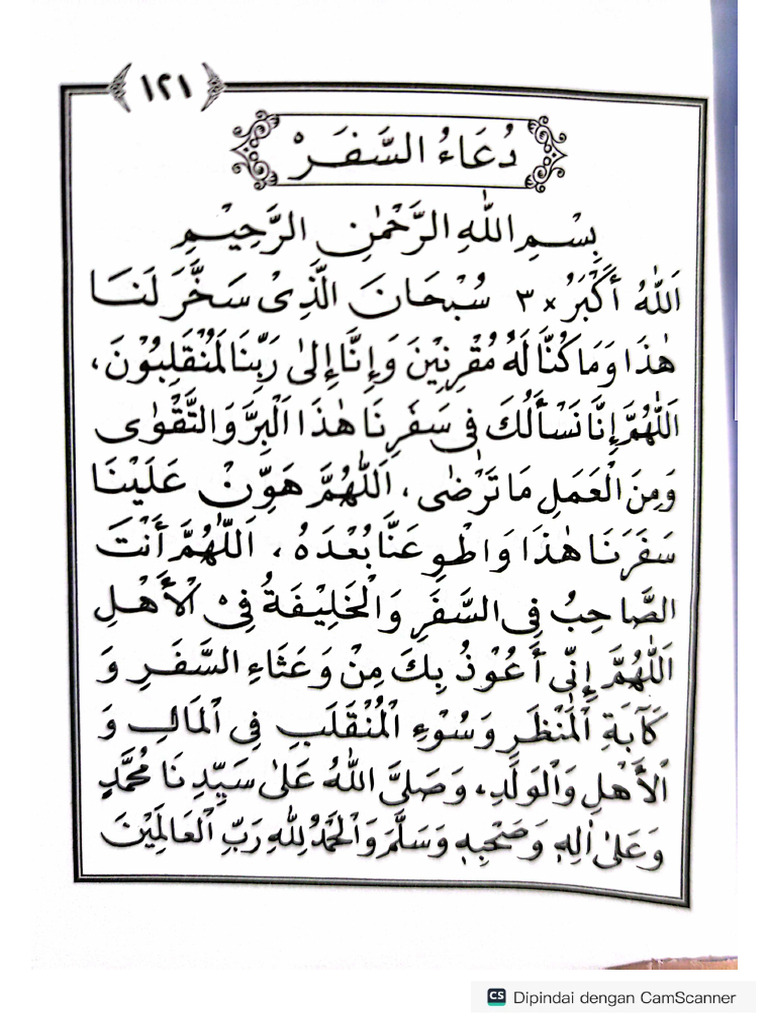 ١٢١
دُعَاءُ السَّفَرْ
بِسْمِ اللّٰهِ الرَّحْمٰنِ الرَّحِيْمِ
اَللّٰهُ أَكْبَرُ ×٣ سُبْحَانَ الَّذِيْ سَخَّرَ لَنَا
هٰذَا وَمَا كُنَّا لَهُ مُقْرِنِيْنَ وَإِنَّا إِلىٰ رَبِّنَا لَمُنْقَلِبُوْنَ،
اَللّٰهُمَّ إِنَّا نَسْأَلُكَ فِي سَفَرِنَا هٰذَا اَلْبِرَّ وَالتَّقْوٰى
وَمِنَ الْعَمَلِ مَا تَرْضٰى، اَللّٰهُمَّ هَوِّنْ عَلَيْنَا
سَفَرَنَا هٰذَا وَاطْوِ عَنَّا بُعْدَهُ، اَللّٰهُمَّ أَنْتَ
الصَّاحِبُ فِي السَّفَرِ وَالْخَلِيْفَةُ فِيْ الْأَهْلِ
اَللّٰهُمَّ إِنِّي أَعُوْذُ بِكَ مِنْ وَعَثَاءِ السَّفَرِ وَ
كَآبَةِ الْمَنْظَرِ وَسُوْءِ الْمُنْقَلَبِ فِي الْمَالِ وَ
الْأَهْلِ وَالْوَلَدِ، وَصَلىَّ اللّٰهُ عَلىٰ سَيِّدِنَا مُحَمَّدٍ
وَعَلىٰ اٰلِهٖ وَصَحْبِهٖ وَسَلَّمَ وَالْحَمْدُ لِلّٰهِ رَبِّ الْعَالَمِيْنَ
CS Dipindai dengan CamScanner